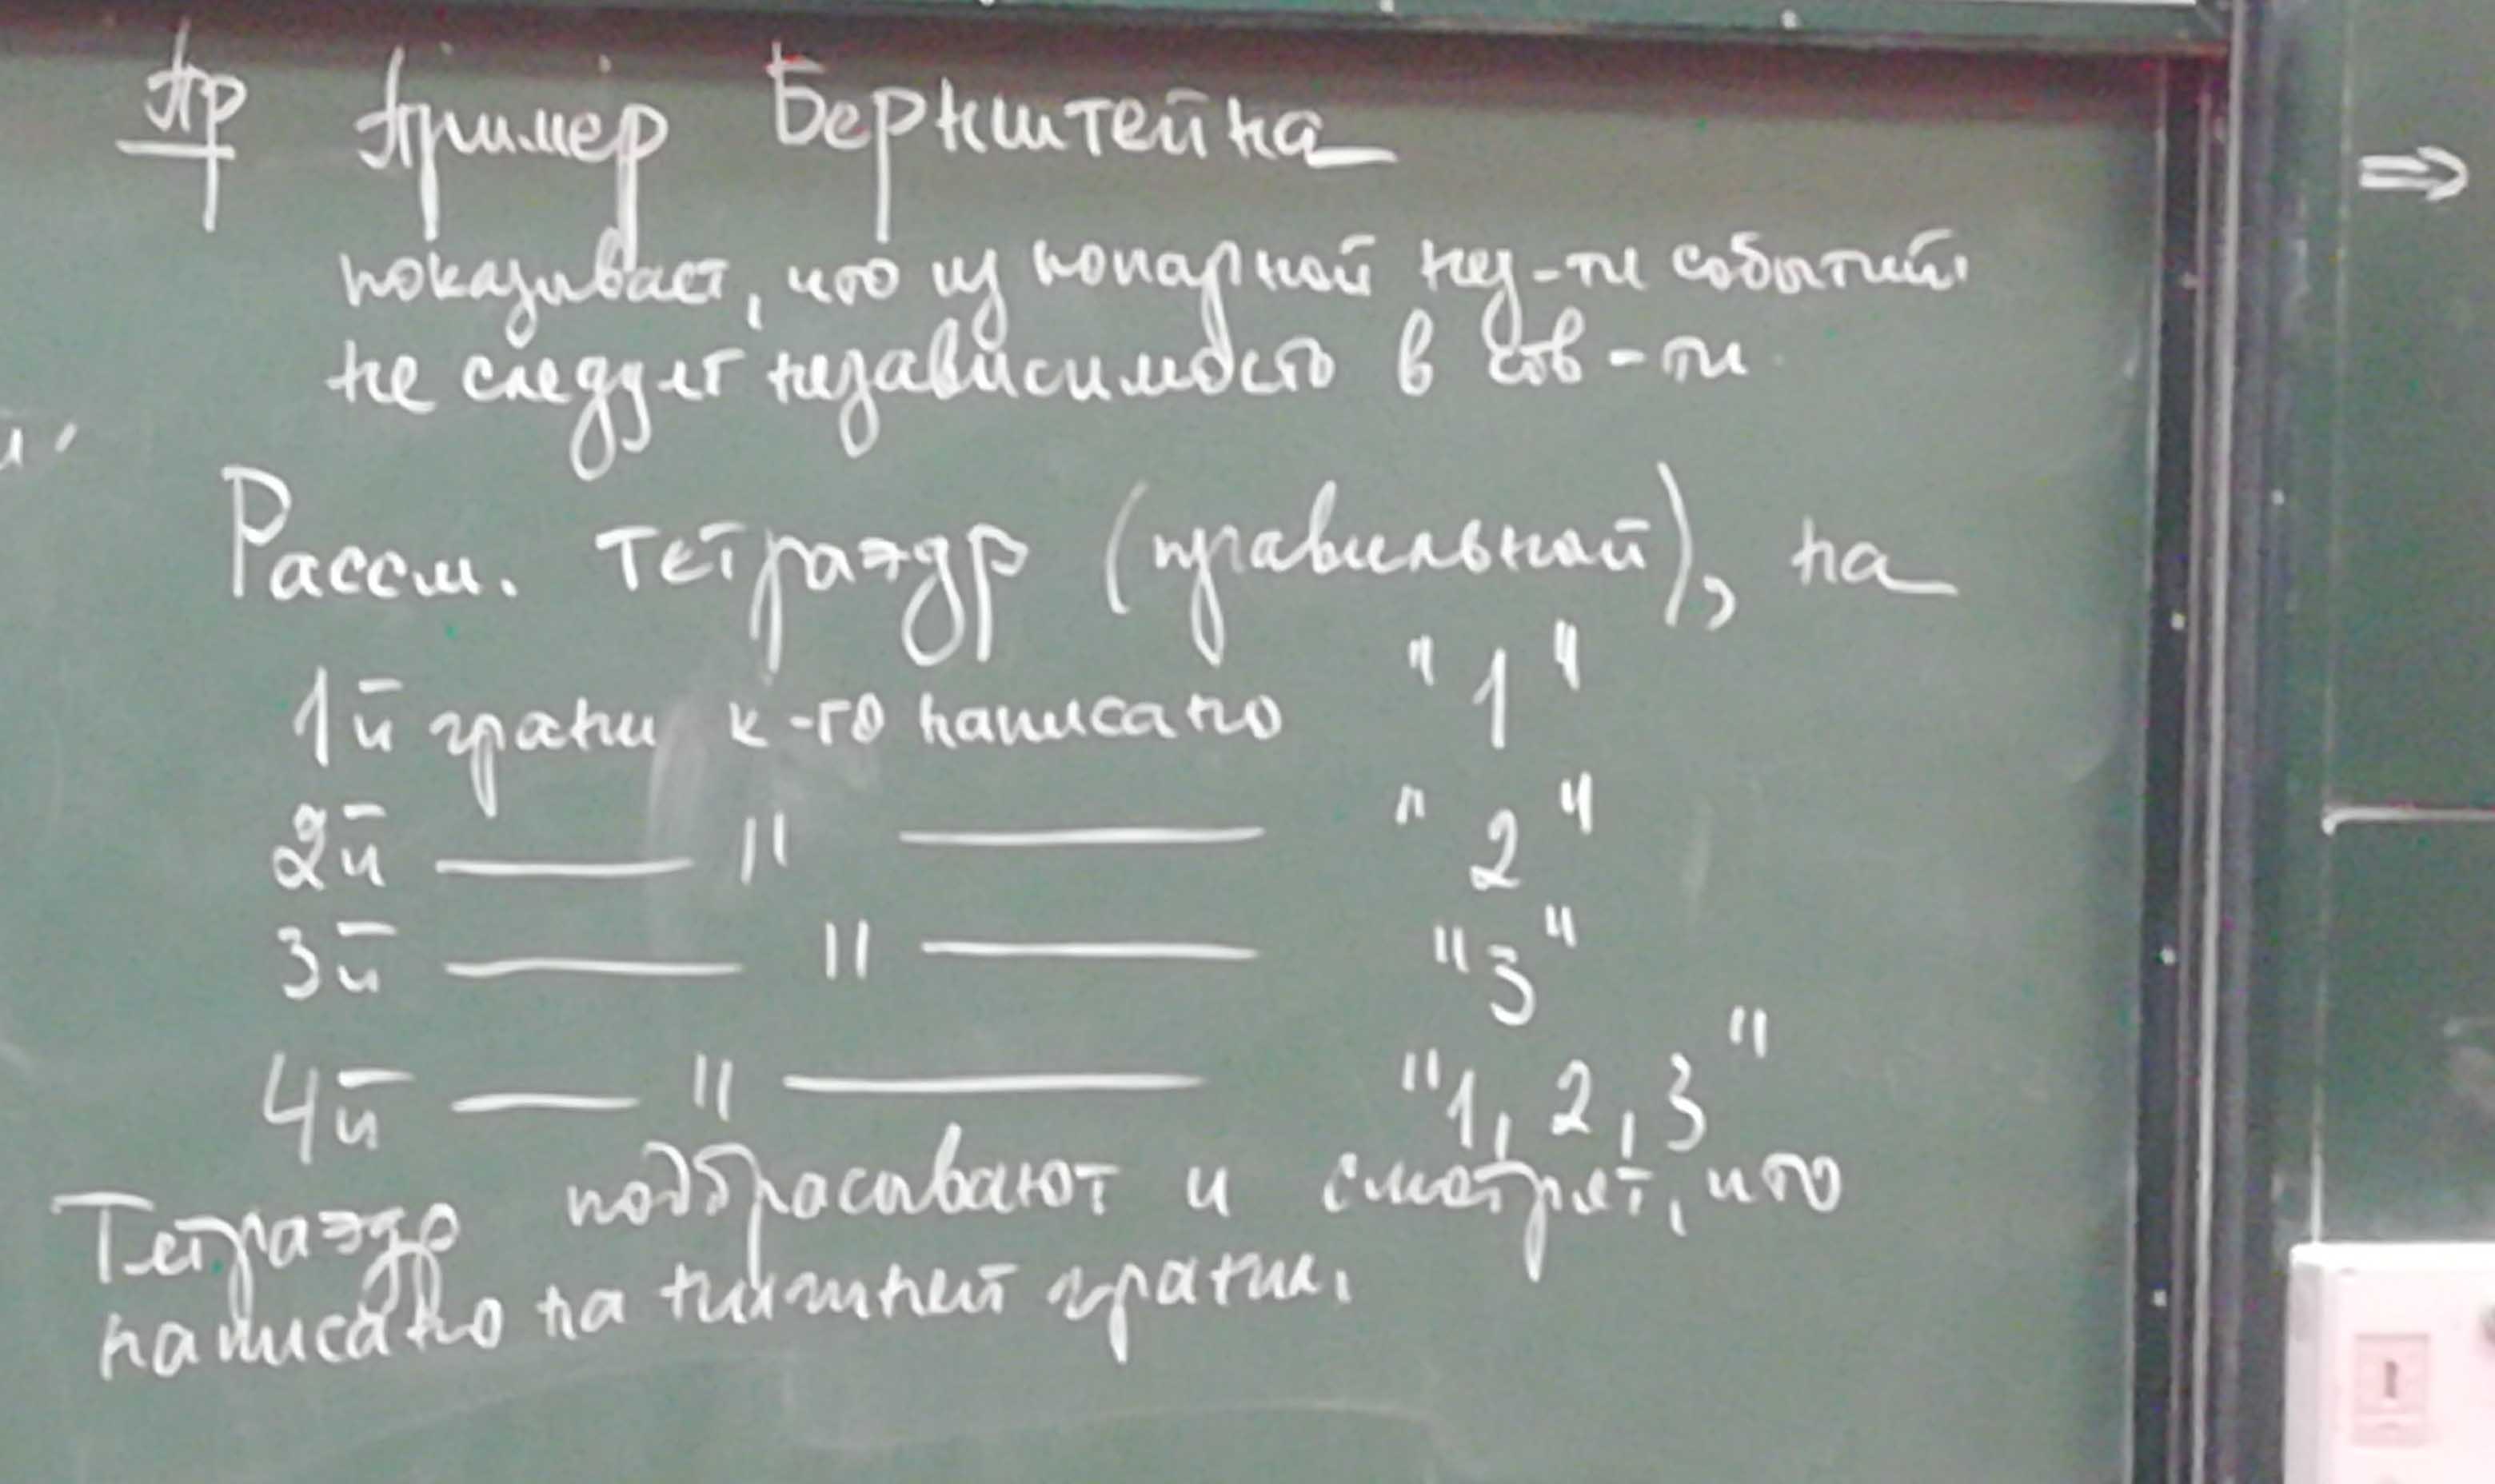 Пр Пример Бернштейна
показывает, что из попарной нез-ти событий
не следует независимость в сов-ти
Рассм. тетраэдр (правильный), на
1й грани к-го написано "1"
2й —— " —— "2"
3й —— " —— "3"
4й —— " —— "1, 2, 3"
Тетраэдр подбрасывают и смотрят, что
написано на нижней грани.
⇒